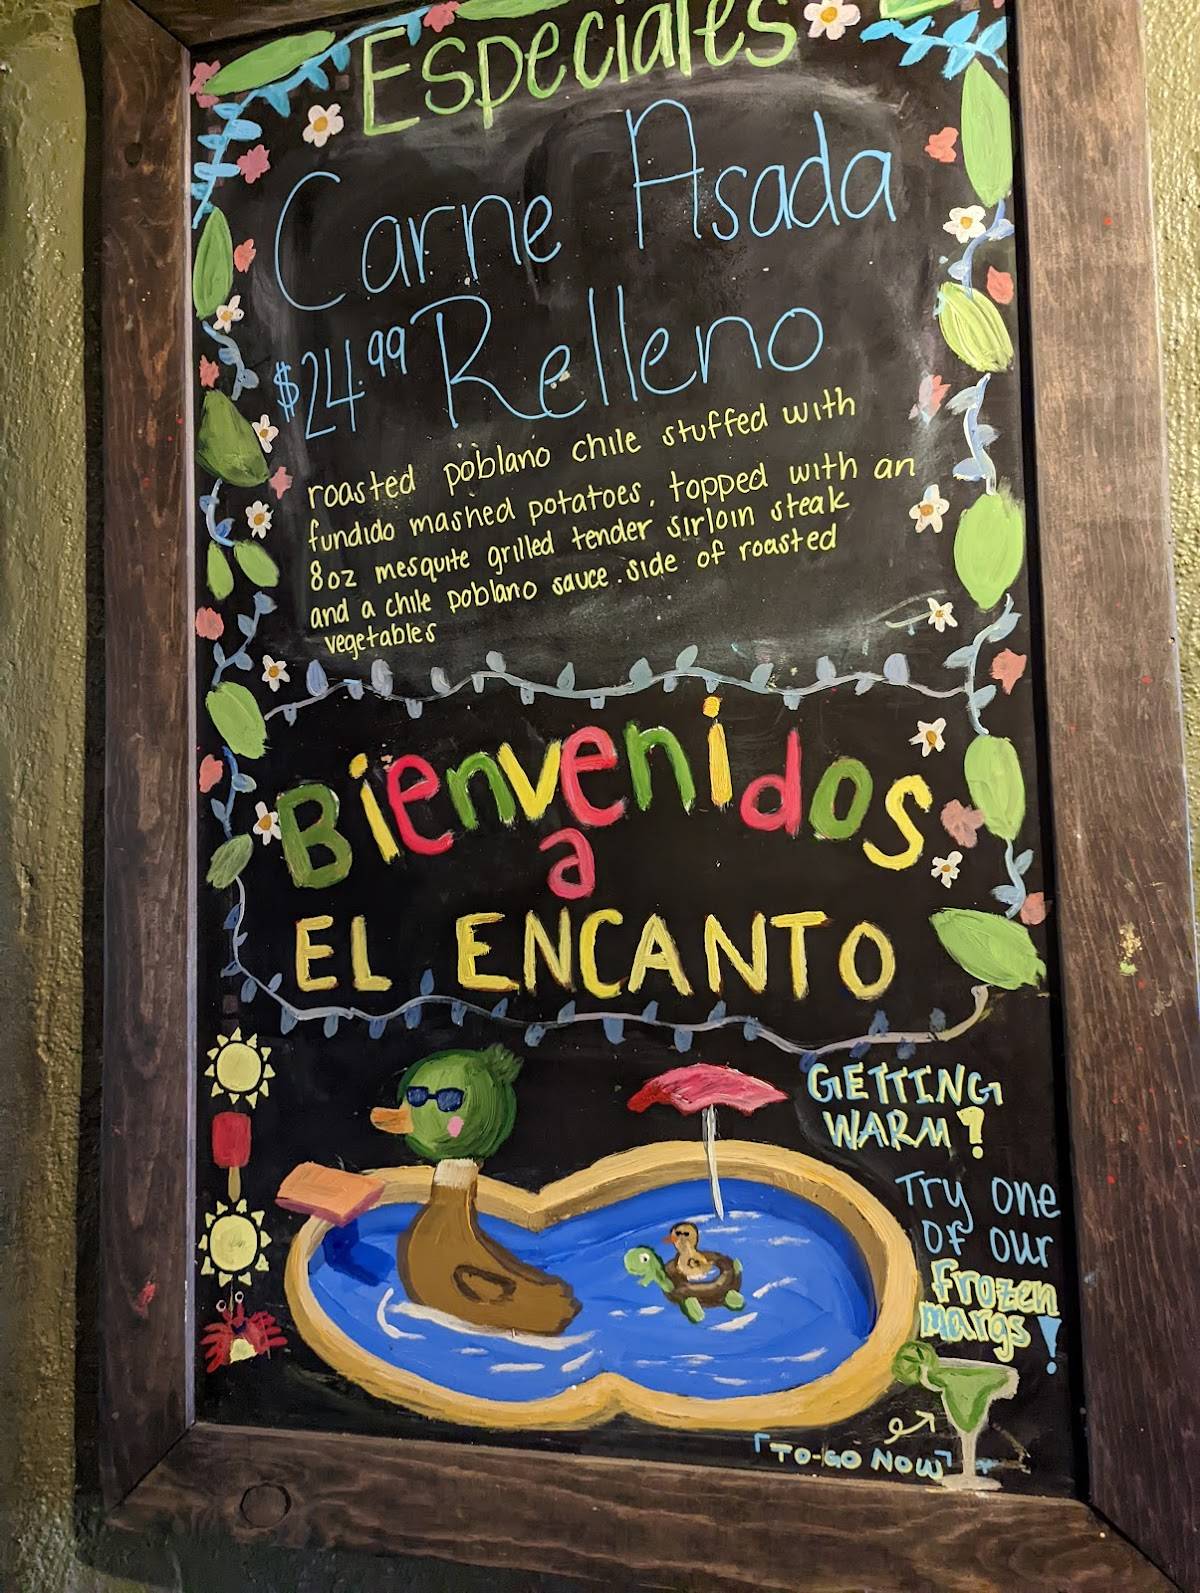 Especiales
Carne Asada
$24.99 Relleno
roasted poblano chile stuffed with
fundido mashed potatoes, topped with an
8oz mesquite grilled tender sirloin steak
and a chile poblano sauce. side of roasted
vegetables
Bienvenidos
a
EL ENCANTO
GETTING
WARM?
Try one
of our
frozen
margs!
"TO-GO NOW"